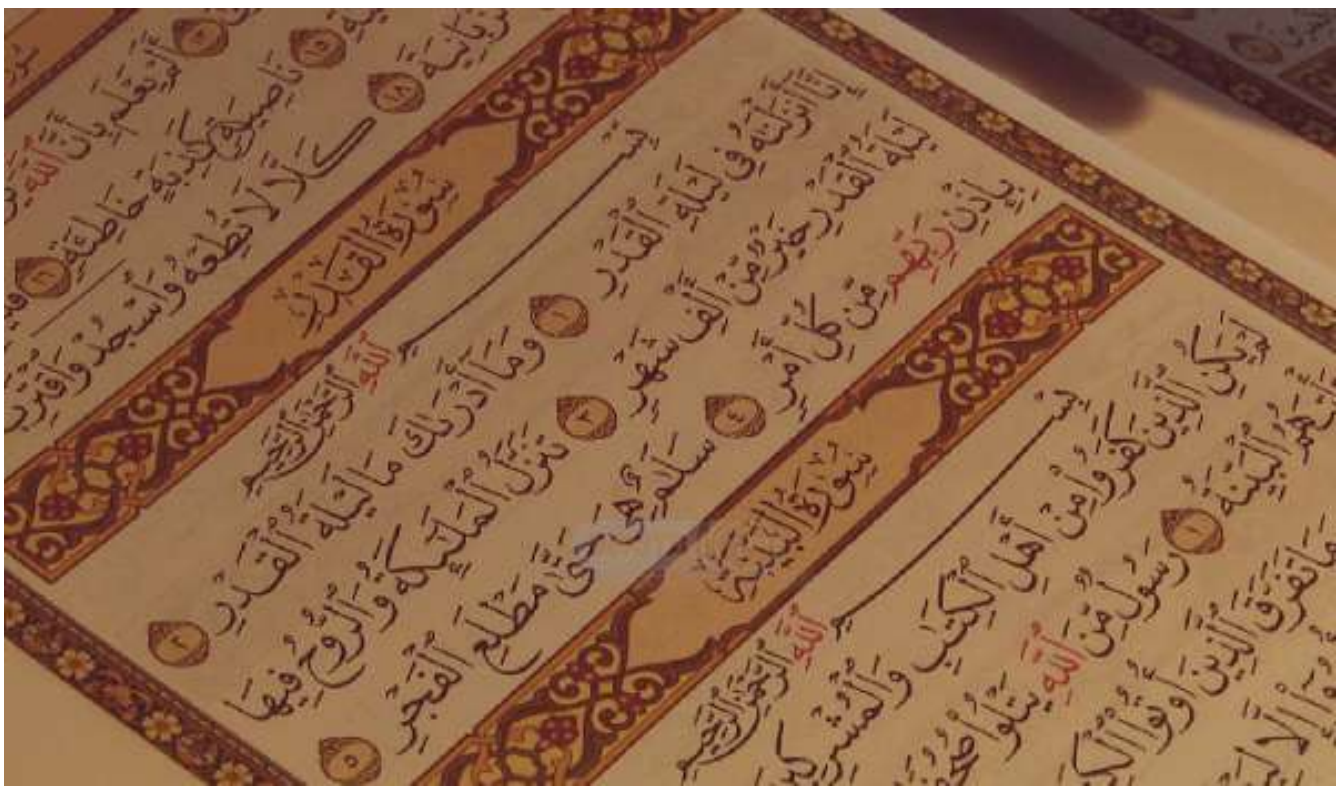 أَلَمْ يَعْلَم بِأَنَّ ٱللَّهَ
١٥ نَاصِيَةٍ كَٰذِبَةٍ خَاطِئَةٍ ١٦
١٨ كَلَّا لَا تُطِعْهُ وَٱسْجُدْ وَٱقْتَرِب
سُورَةُ ٱلْقَدْرِ
بِسْمِ ٱللَّهِ ٱلرَّحْمَٰنِ ٱلرَّحِيمِ
إِنَّآ أَنزَلْنَٰهُ فِى لَيْلَةِ ٱلْقَدْرِ ١ وَمَآ أَدْرَىٰكَ مَا لَيْلَةُ ٱلْقَدْرِ ٢
لَيْلَةُ ٱلْقَدْرِ خَيْرٌ مِّنْ أَلْفِ شَهْرٍ ٣ تَنَزَّلُ ٱلْمَلَٰٓئِكَةُ وَٱلرُّوحُ فِيهَا
بِإِذْنِ رَبِّهِم مِّن كُلِّ أَمْرٍ ٤ سَلَٰمٌ هِىَ حَتَّىٰ مَطْلَعِ ٱلْفَجْرِ ٥
سُورَةُ ٱلْبَيِّنَةِ
بِسْمِ ٱللَّهِ ٱلرَّحْمَٰنِ ٱلرَّحِيمِ
لَمْ يَكُنِ ٱلَّذِينَ كَفَرُوا۟ مِنْ أَهْلِ ٱلْكِتَٰبِ وَٱلْمُشْرِكِينَ
ٱلْبَيِّنَةُ ١ رَسُولٌ مِّنَ ٱللَّهِ يَتْلُوا۟
تَفَرَّقَ ٱلَّذِينَ أُوتُوا۟
إِلَّا